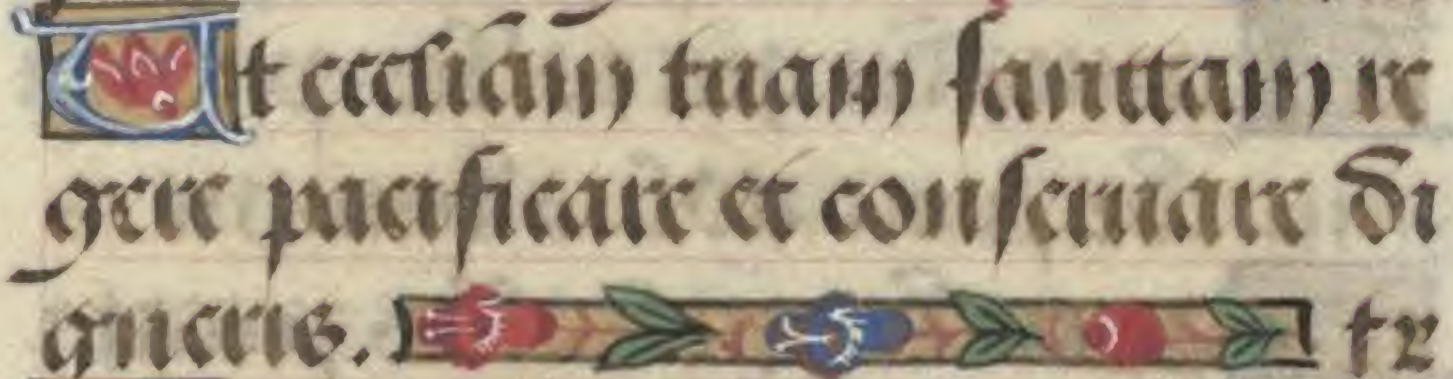 Ut ecclesiam tuam sanctam re
gere pacificare et conseruare di
gneris. tr